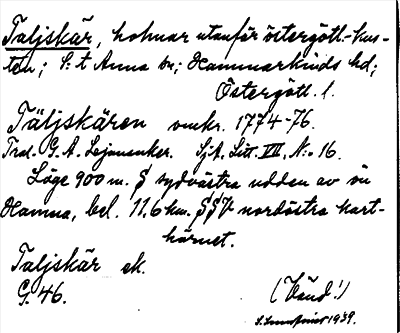 Taljskär, holmar utanför östergötl.-kus-
ten; S:t Anna sn; Hammarkinds hd;
Östergötl. l.
Täljskären omkr. 1774-76.
Trol. G. A. Lejonanker. SjA. Litt VII, N:o 16.
Läge 900 m. S sydvästra udden av ön
Hamna, bel. 11,6 km. SSV nordöstra kart-
hörnet.
Taljskär ek.
G. 46.
(Vänd!)
1939.